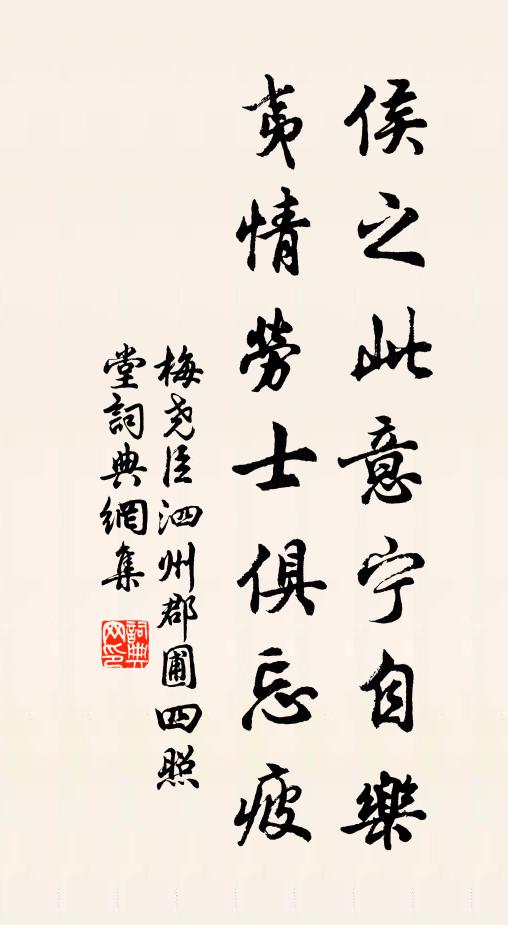 侯之此意宁自樂
夷情勞士俱忘疲
梅尧臣泗州郡圃四照
堂詞典網集
詞典
网